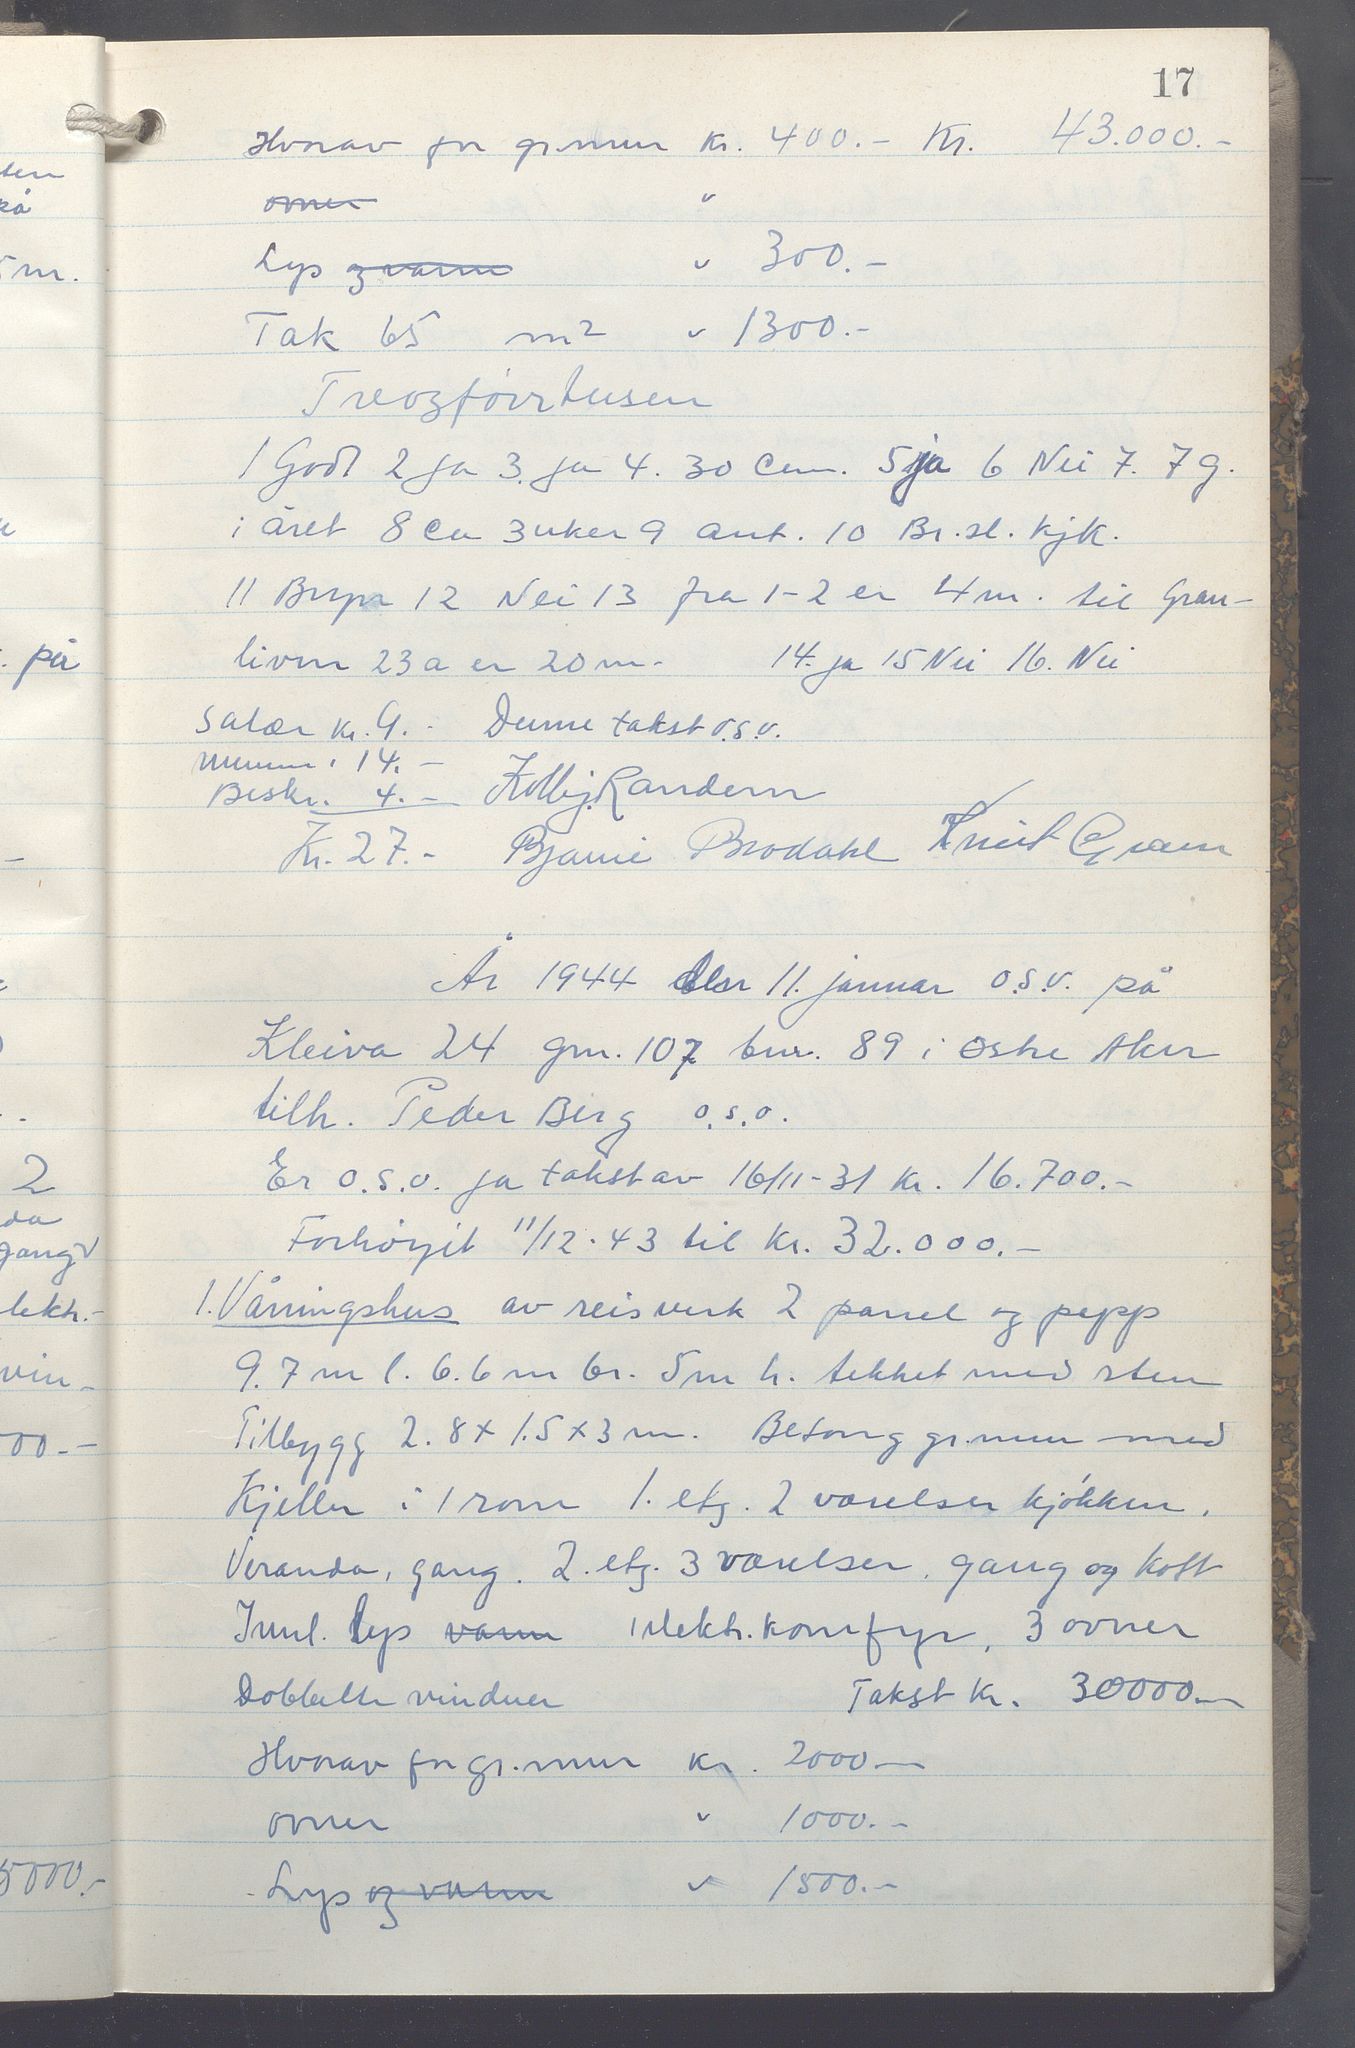 17
Hvorav for gr.mur Kr. 400.- Kr. 43.000.-
ovner "
Lys og vann " 300.-
Tak 65 m2 " 1300.-
1 Godt 2 ja 3. ja 4. 30 Cm. 5 ja 6 Nei 7. 7 g.
i året 8 Ca 3 uker 9 Ant. 10 Br.sl. kjk.
11 12 Nei 13 fra 1-2 er 4 m. til Gran-
livn 23a er 20 m. 14. ja 15 Nei 16. Nei
Salær kr. 9.- Denne takst o.s.v.
14.-
Beskr. 4.- Kolbj. Randem
Kr. 27.- Bjarne Brodahl Knut Gram
År 1944 den 11. januar o.s.v. på
Kleiva 24 gnr. 107 bnr. 89 i Østre Aker
tilh. Peder Berg o.s.v.
Er o.s.v. ja takst av 16/11-31 kr. 16.700.-
Forhöyet 11/12-43 til kr. 32.000.-
1. Våningshus av reisverk 2 panel og papp
9.7 m l. 6.6 m br. 5 m h. tekket med sten
Tilbygg 2.8 x 1.5 x 3 m. Betong gr.mur med
Kjeller i 1 rom 1. etg. 2 værelser kjökken,
Veranda, gang. 2. etg. 3 værelser, gang og koft
Innl. lys vann elektr. komfyr, 3 ovner
Dobbelte vinduer Takst Kr. 30000.-
Hvorav for gr.mur Kr. 2000.-
ovner " 1000.-
Lys og vann " 1500.-